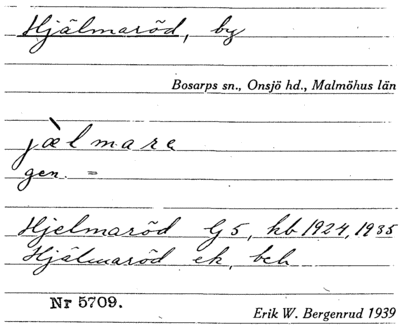 Hjälmaröd, by
Bosarps sn., Onsjö hd., Malmöhus län
jæ̀lmare
gen. =
Hjelmaröd G5, kb 1924, 1935
Hjälmaröd ek, bch
Nr 5709.
Erik W. Bergenrud 1939